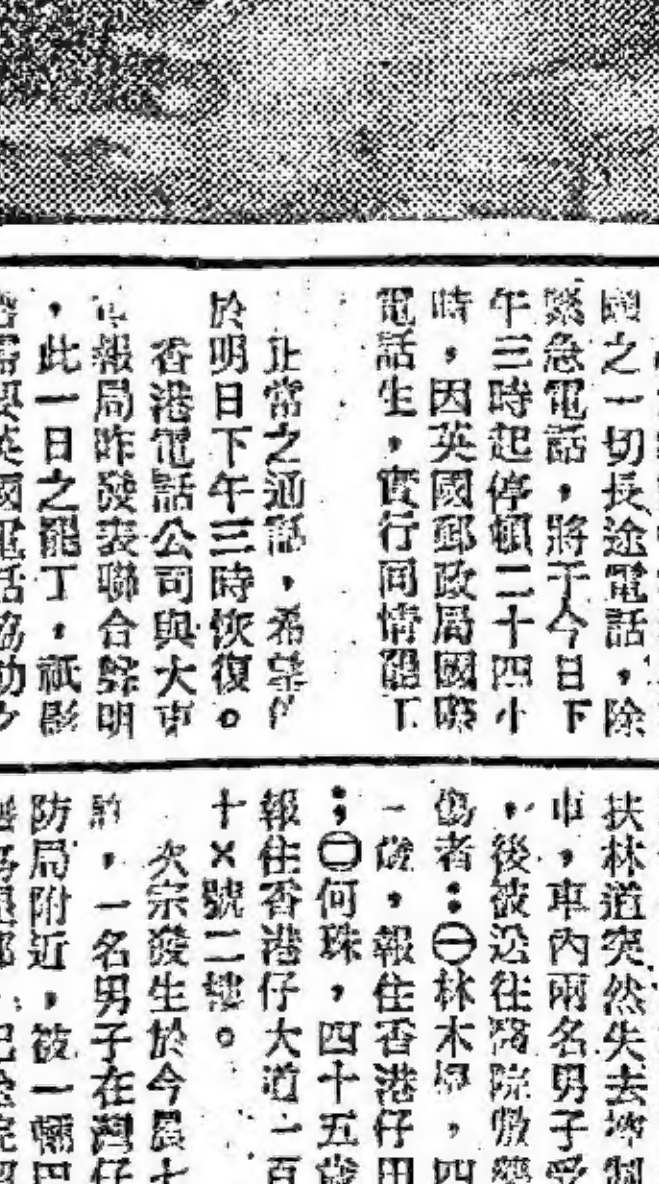 國之一切長途電話，除
緊急電話，將于今日下
午三時起停頓二十四小
時，因英國郵政局國際
電話生，實行同情罷工
正常之通話，希望
於明日下午三時恢復。
香港電話公司與大東
電報局昨發表聯合聲明
，此一日之罷工，祇影
需要英國電話協助
扶林道突然失去控制
車，車內兩名男子受
，後被送往醫院敷藥
傷者：㊀林木，四
一歲，報住香港仔田
；㊁何珠，四十五歲
報住香港仔大道一百
十×號二樓。
次宗發生於今晨七
許，一名男子在灣仔
防局附近，被一輛四